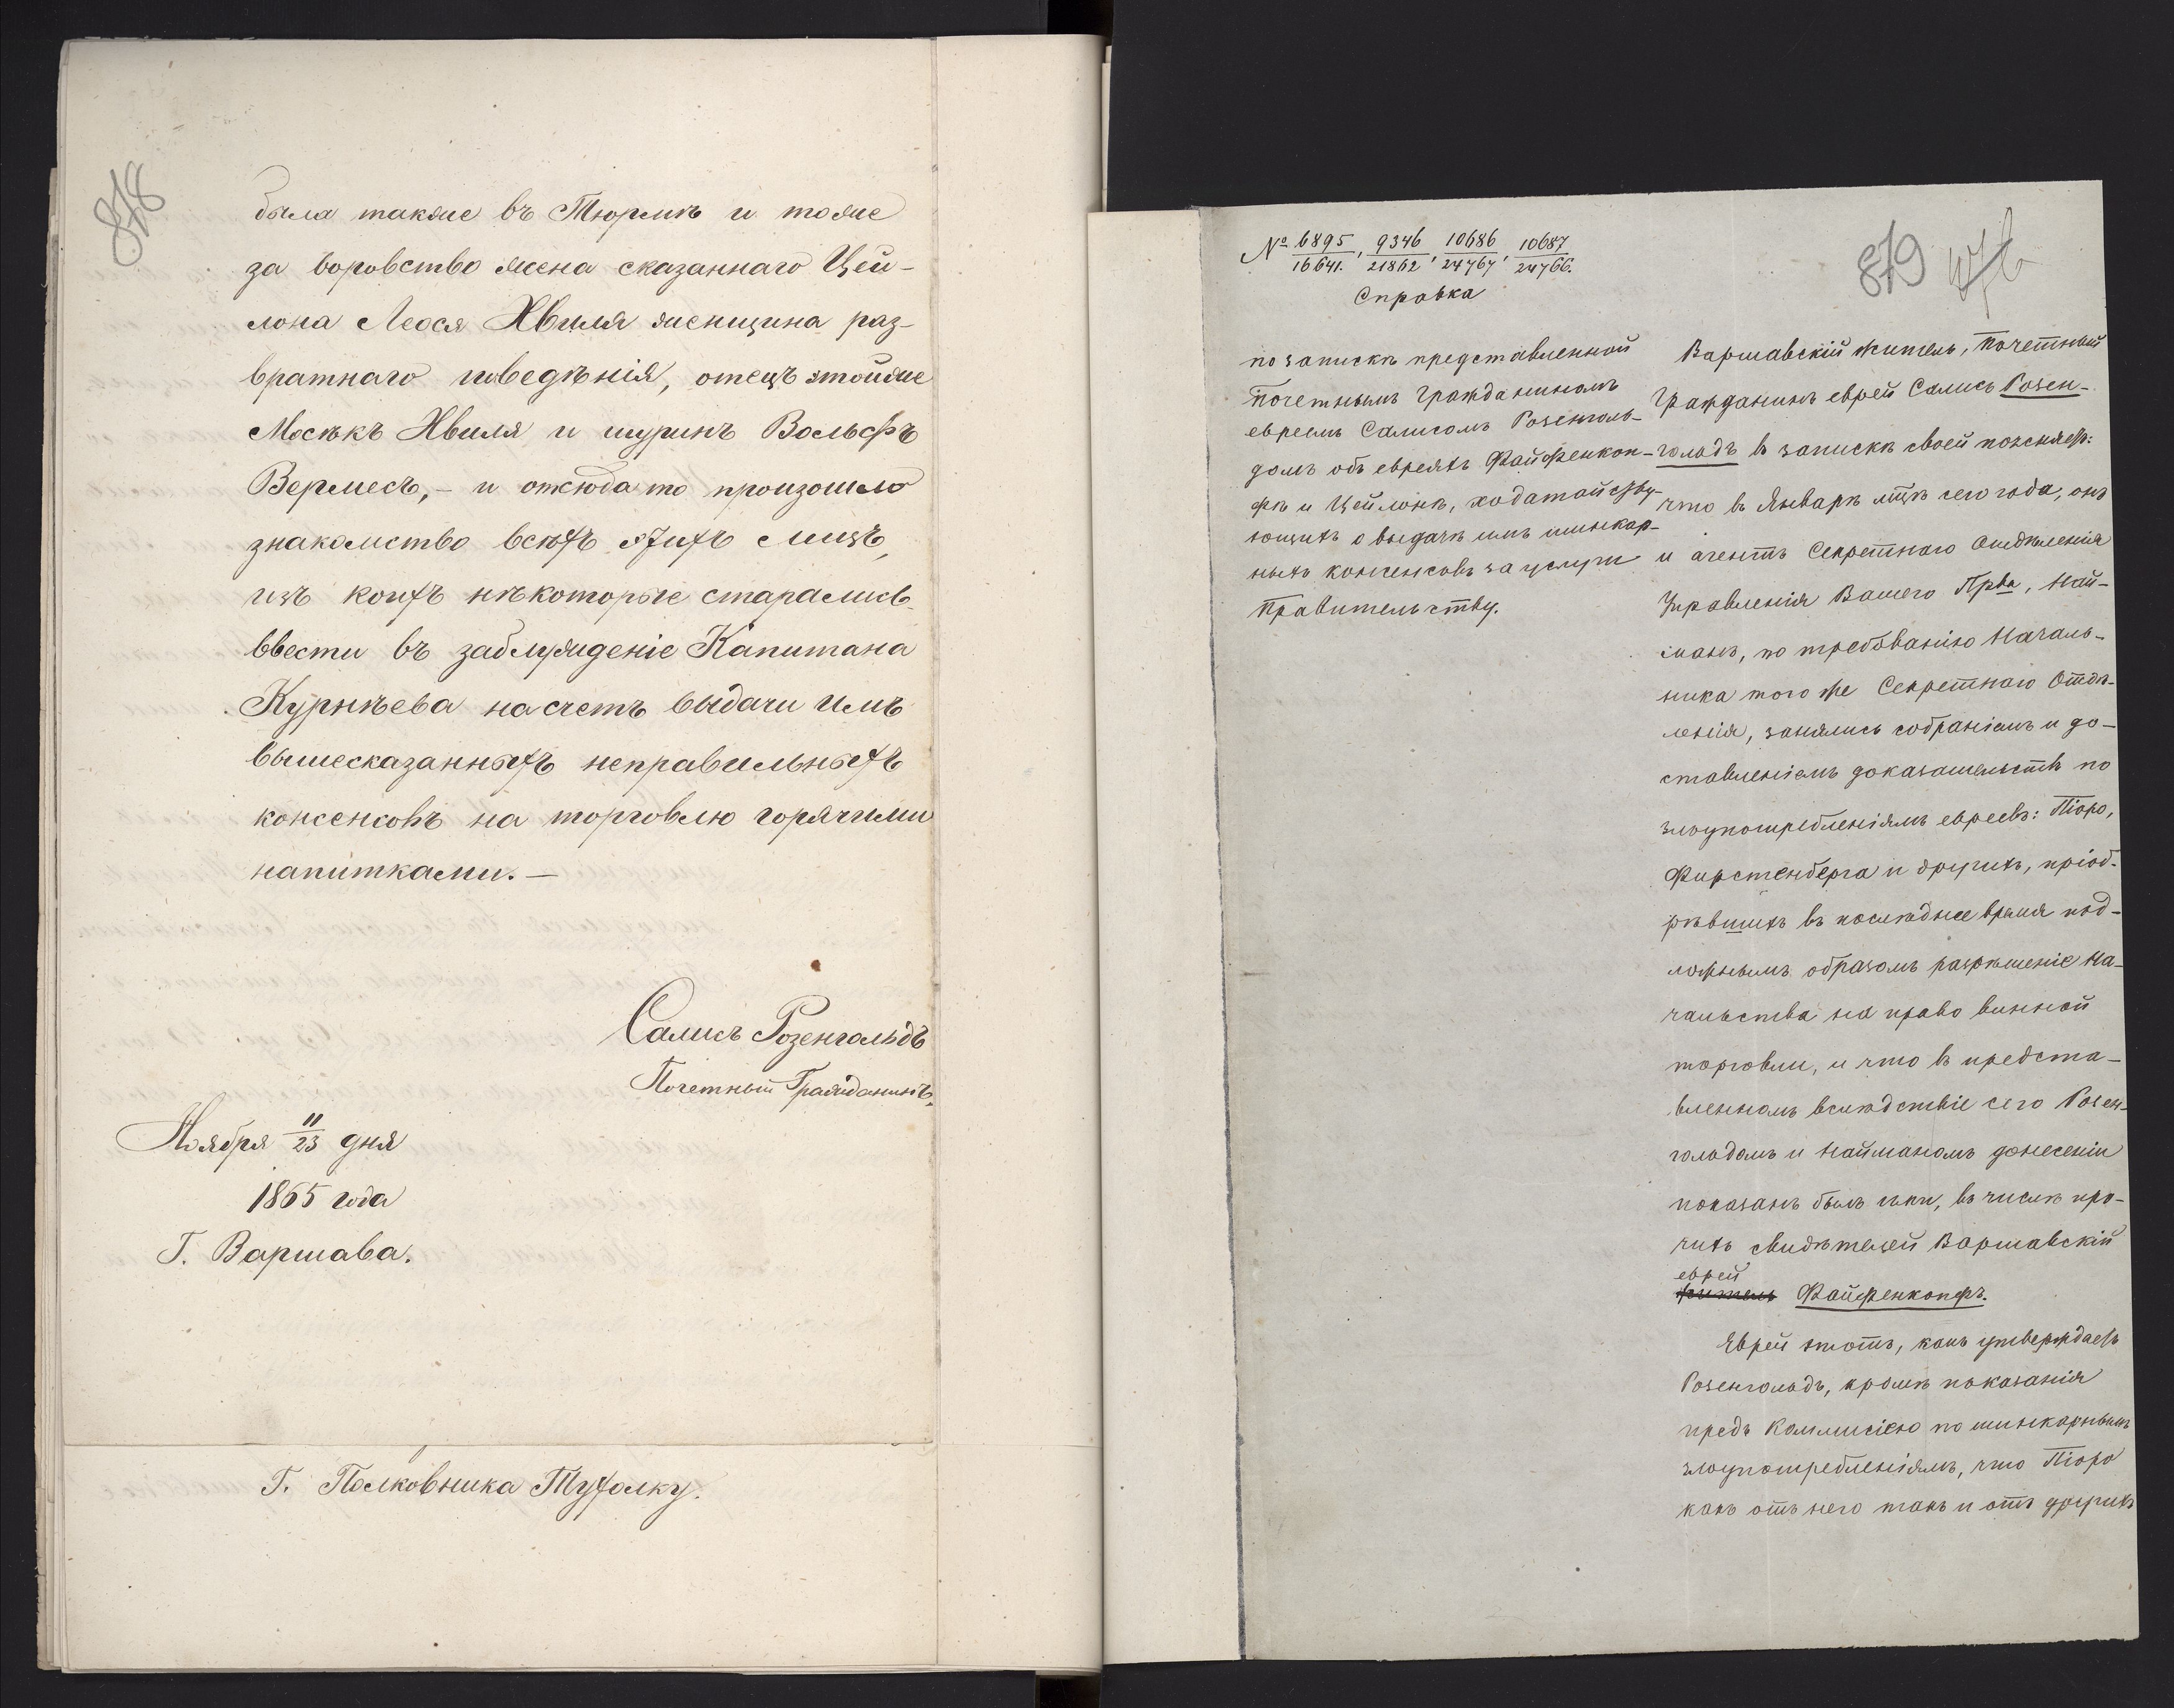 878
была также въ Тюрмѣ и тоже
за воровство жена сказаннаго Цей-
лона Леося Хвиля женщина раз-
вратнаго поведѣнія, отецъ этойже
Мосѣкъ Хвиля и шуринъ Вольфъ
Вермесъ,- и отсюда то произошло
знакомство всѣхъ этихъ лицъ,
изъ коихъ нѣкоторые старались
ввести въ заблужденіе Капитана
Курнѣева насчетъ выдачи имъ
вышесказанныхъ неправильныхъ
консенсовъ на торговлю горячими
напитками.—
Салисъ Розенгольдъ
Почетный Гражданинъ.
Ноября 11/23 дня
1865 года
Г. Варшава.
Г. Полковника Тухолку.
879
№ 6895/16641, 9346/21862, 10686/24767, 10687/24766.
Справка
по запискѣ представленной
Почетнымъ Гражданиномъ
евреемъ Салисомъ Розенголь-
домъ объ евреяхъ Файфенкоп-
фѣ и Цейлонѣ, ходатайству-
ющихъ о выдачѣ имъ шинкар-
ныхъ консенсовъ за услуги
Правительству.
Варшавскій житель, Почетный
Гражданинъ еврей Салисъ Розен-
голадъ въ запискѣ своей поясняетъ:
что въ Январѣ мцѣ сего года, онъ
и агентъ Секретнаго Отдѣленія
Управленія Вашего Прва, Най-
манъ, по требованію Началь-
ника того же Секретнаго Отдѣ-
ленія, занялись собраніемъ и до-
ставленіемъ доказательствъ по
злоупотребленіямъ евреевъ: Піоро,
Фирстенберга и другихъ, пріоб-
рѣвшихъ въ послѣднее время под-
ложнымъ образомъ разрѣшеніе На-
чальства на право винной
торговли, и что въ предста-
вленномъ вслѣдствіе сего Розен-
голадомъ и Найманомъ донесеніи
показанъ былъ ими, въ числѣ про-
чихъ свидѣтелей Варшавскій
еврей
житель Файфенкопфъ.
Еврей этотъ, какъ утверждаетъ
Розенголадъ, кромѣ показанія
предъ Коммисіею по шинкарнымъ
злоупотребленіямъ, что Піоро
какъ отъ него такъ и отъ другихъ